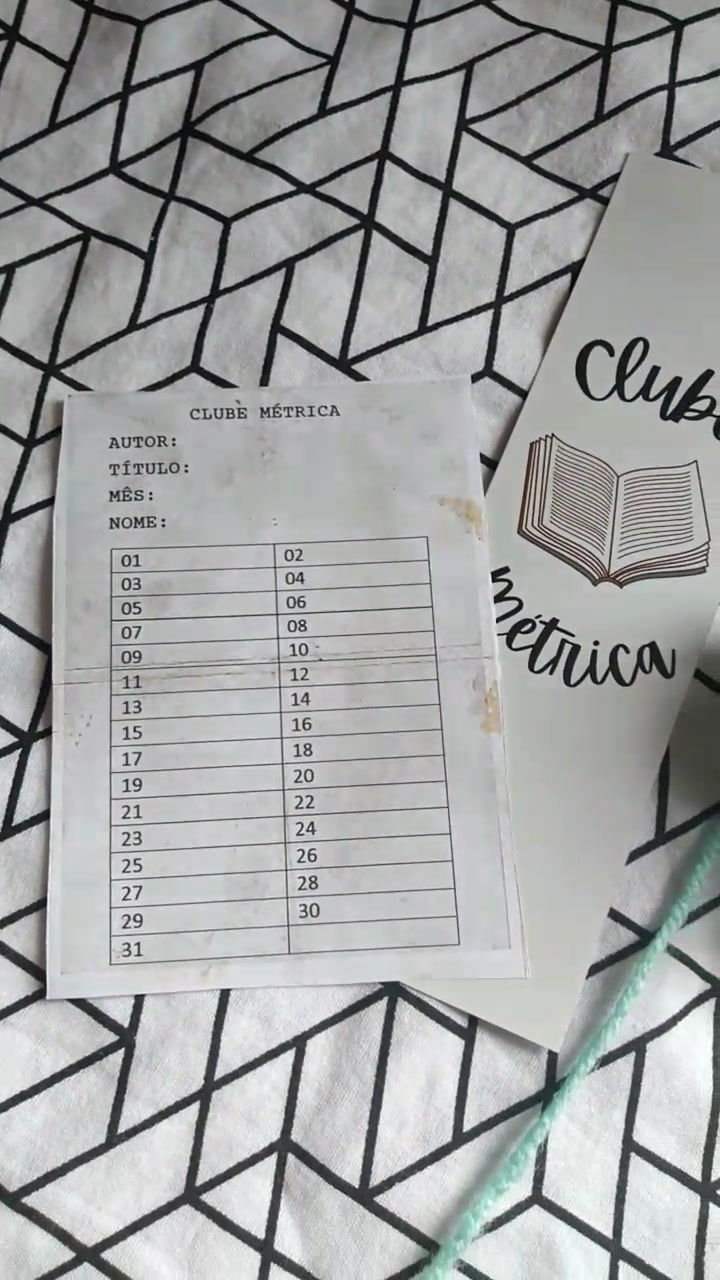 CLUBE MÉTRICA
AUTOR:
TÍTULO:
MÊS:
NOME:
01 02
03 04
05 06
07 08
09 10
11 12
13 14
15 16
17 18
19 20
21 22
23 24
25 26
27 28
29 30
31
Clube
Métrica